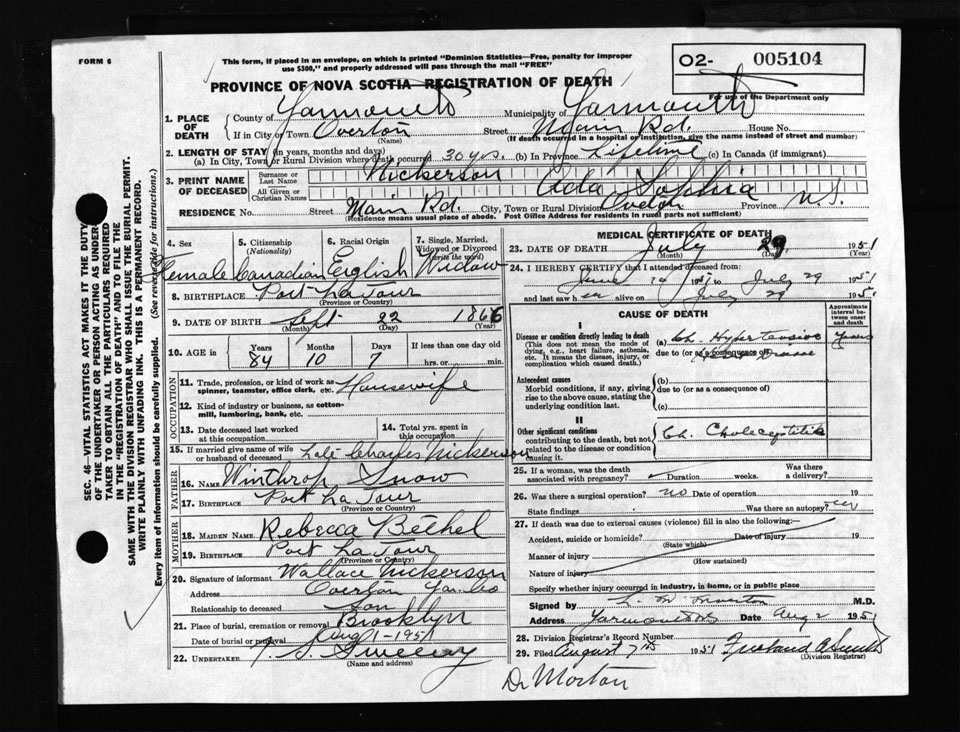 FORM 6
This form, if placed in an envelope, on which is printed "Dominion Statistics—Free, penalty for improper
use $300," and properly addressed will pass through the mail "FREE"
O2- 005104
For use of the Department only
PROVINCE OF NOVA SCOTIA—REGISTRATION OF DEATH
1. PLACE OF DEATH
County of Yarmouth Municipality of Yarmouth
If in City or Town Overton Street Main Rd. House No.
(Name) (If death occurred in a hospital or institution, give the name instead of street and number)
2. LENGTH OF STAY (in years, months and days)
(a) In City, Town or Rural Division where death occurred 30 yrs. (b) In Province Lifetime (c) In Canada (if immigrant)
3. PRINT NAME OF DECEASED
Surname or Last Name Nickerson
All Given or Christian Names Ada Sophia
RESIDENCE No. Street Main Rd. City, Town or Rural Division Overton Province N.S.
(Residence means usual place of abode. Post Office Address for residents in rural parts not sufficient)
4. Sex
Female
5. Citizenship
(Nationality)
Canadian
6. Racial Origin
English
7. Single, Married,
Widowed or Divorced
(write the word)
Widow
8. BIRTHPLACE Port La Tour
(Province or Country)
9. DATE OF BIRTH Sept 22 1866
(Month) (Day) (Year)
10. AGE in Years Months Days If less than one day old
84 10 7 hrs. or min.
OCCUPATION
11. Trade, profession, or kind of work as
spinner, teamster, office clerk, etc. Housewife
12. Kind of industry or business, as cotton-
mill, lumbering, bank, etc.
13. Date deceased last worked
at this occupation
14. Total yrs. spent in
this occupation
15. If married give name of wife
or husband of deceased Late Charles Nickerson
FATHER
16. NAME Winthrop Snow
17. BIRTHPLACE Port La Tour
(Province or Country)
MOTHER
18. MAIDEN NAME Rebecca Bethel
19. BIRTHPLACE Port La Tour
(Province or Country)
20. Signature of informant Wallace Nickerson
Address Overton Yar. Co
Relationship to deceased Son
21. Place of burial, cremation or removal Brooklyn
Date of burial or removal Aug 1-1951
22. UNDERTAKER Sweeny
(Name and address)
MEDICAL CERTIFICATE OF DEATH
23. DATE OF DEATH July 29 1951
(Month) (Day)
24. I HEREBY CERTIFY that I attended deceased from
June 19 1951 to July 29 1951
and last saw her alive on July 29 1951
CAUSE OF DEATH
Approximate
interval between
onset
and death
I
Disease or condition directly leading to death
(This does not mean the mode of
dying, e.g., heart failure, asthenia,
etc. It means the disease, injury, or
complication which caused death.)
(a) Ch. Hypertensive years
due to (or as a consequence of)
Antecedent causes
Morbid conditions, if any, giving
rise to the above cause, stating the
underlying condition last.
(b)
due to (or as a consequence of)
(c)
II
Other significant conditions
contributing to the death, but not
related to the disease or condition
causing it.
Ch. Cholecystitis
25. If a woman, was the death
associated with pregnancy? Duration weeks. Was there a delivery?
26. Was there a surgical operation? no Date of operation 19
State findings Was there an autopsy?
27. If death was due to external causes (violence) fill in also the following:—
Accident, suicide or homicide? Date of injury 19
(State which)
Manner of injury
(How sustained)
Nature of injury
Specify whether injury occurred in industry, in home, or in public place
Signed by L. M. Morton M.D.
Address Yarmouth Date Aug 2 1951
28. Division Registrar's Record Number
29. Filed August 7th 1951
(Division Registrar)
Dr Morton
SEC. 46—VITAL STATISTICS ACT MAKES IT THE DUTY
OF THE UNDERTAKER OR PERSON ACTING AS UNDER-
TAKER TO OBTAIN ALL THE PARTICULARS REQUIRED
IN THE "REGISTRATION OF DEATH" AND TO FILE THE
SAME WITH THE DIVISION REGISTRAR WHO SHALL ISSUE THE BURIAL PERMIT.
WRITE PLAINLY WITH UNFADING INK. THIS IS A PERMANENT RECORD.
Every item of information should be carefully supplied. (See reverse side for instructions.)